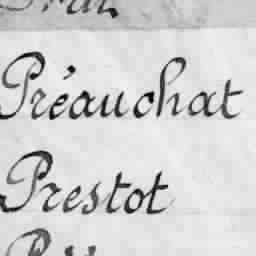 Préauchat
Prestot